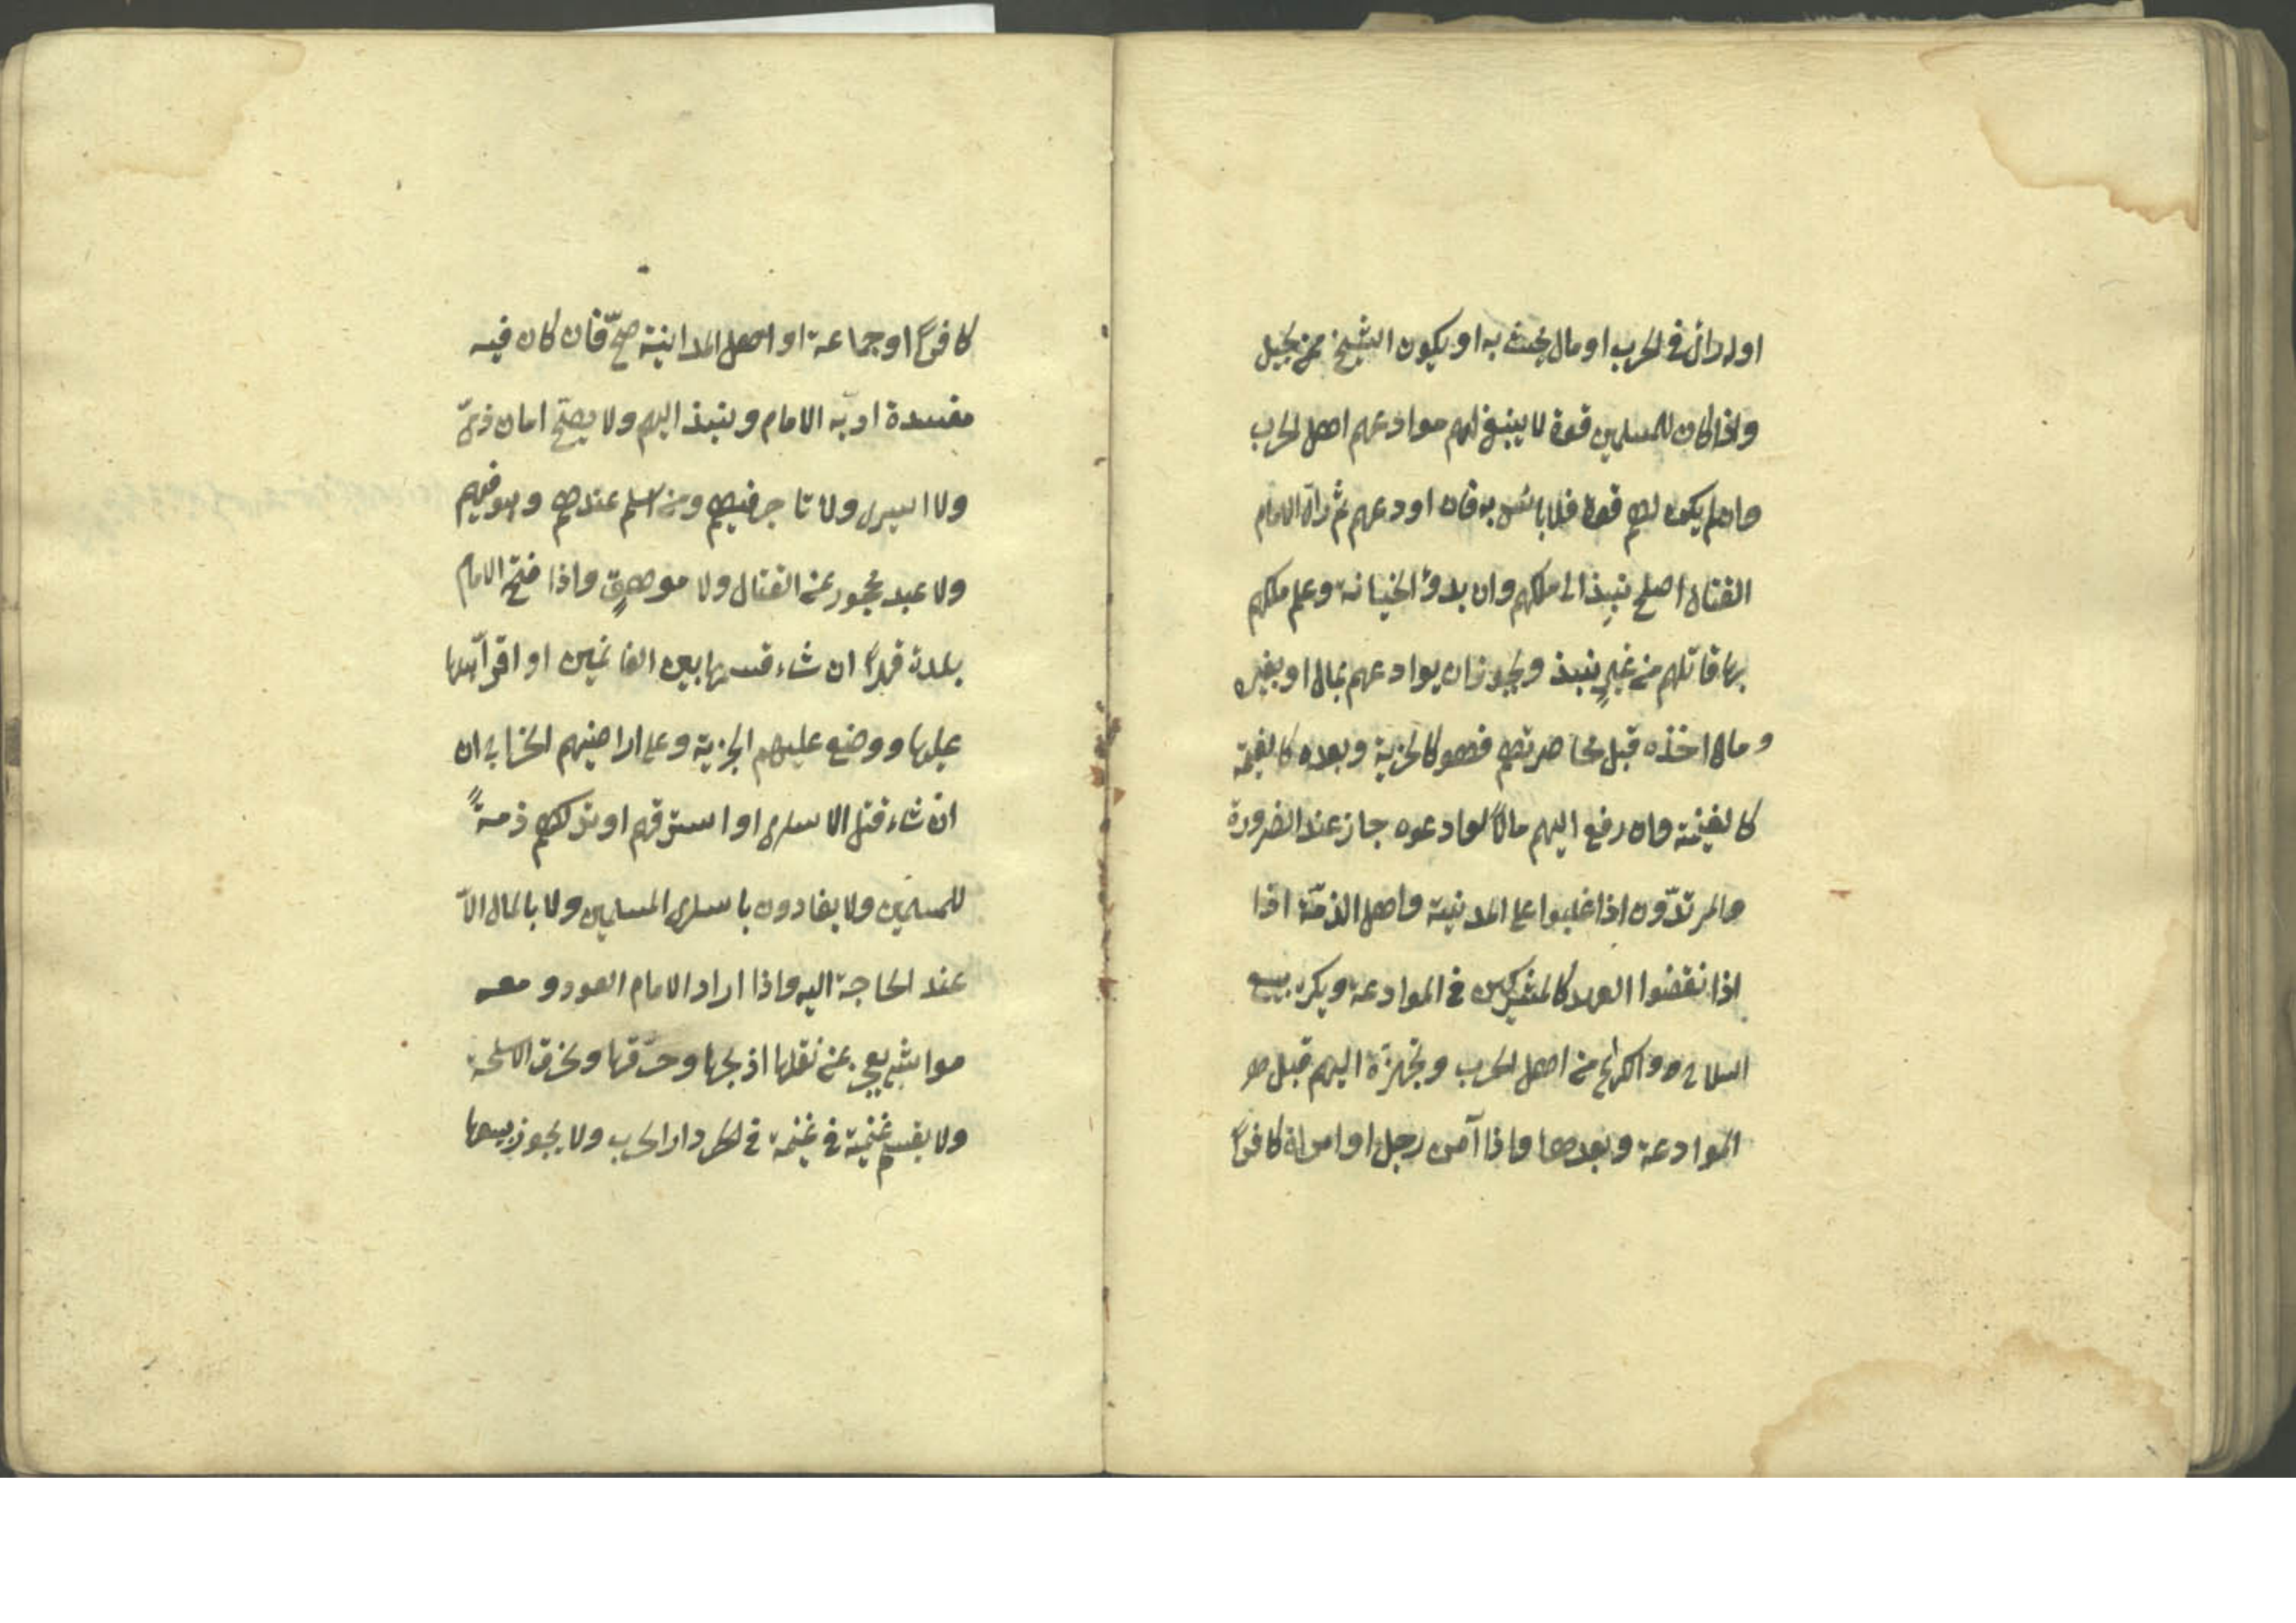 او له رائ فى الحرب او مال يحث به او يكون الشيخ ممن يحيل
واذا كان للمسلمين قوة لا ينبغى لهم موادعهم اهل الحرب
وان لم يكن لهم قوة فلا بائس به فان اودعهم ثم راه الامام
القتال اصلح نبيذ الى ملكهم وان بدؤ الخيانة وعلم ملكهم
بها قاتلهم من غيرٍ ينبذ ويجوز ان يوادعهم بمال او بغيره
وما اخذه قبل محاصرتهم فهو كالجزية وبعده كالغيمة
كالغينمة وان رفع اليهم مالاً لوادعوه جاز عند الضرورة
والمرتدّون اذا غلبوا على المدنية واهل الذمّة اذا
اذا نقضوا العهد كالمشركين فى الموادعة ويكره بيع
السلاح و والكراع من اهل الحرب وتجهزة اليهم قبل هو
الموادعة وبعدها واذا آمن رجل او امراة كافراً
كافراً او جماعة او اهل المداينة صحّ فان كان فيه
مفسدة ادبّه الامام وينبذ اليهم ولا يصحّ امان ذمىّ
ولا اسيرى ولا تاجر فيهم ومن اسلم عندهم وهو فيهم
ولا عبد محجور عن القتال ولا موهقٍ واذا فتح الامام
بلدة قهراً ان شاء قسمها بين الغانمين او اقرّ آهلها
عليها ووضع عليهم الجزية وعلى اراضيهم الخراج ان
ان شاء قتل الاسارى او استرقهم او تركهم ذمةً
للمسلمين ولا يفادون باسارى المسلمين ولا بالمال الاّ
عند الحاجة اليه واذا اراد الامام العود و معه
مواشى يعجز عن نقلها اذبحها وحرّقها ويحرق الاسلحة
ولا يقسم غنيمة فى غيمة فى الحر دار الحرب ولا يجوز بيعها